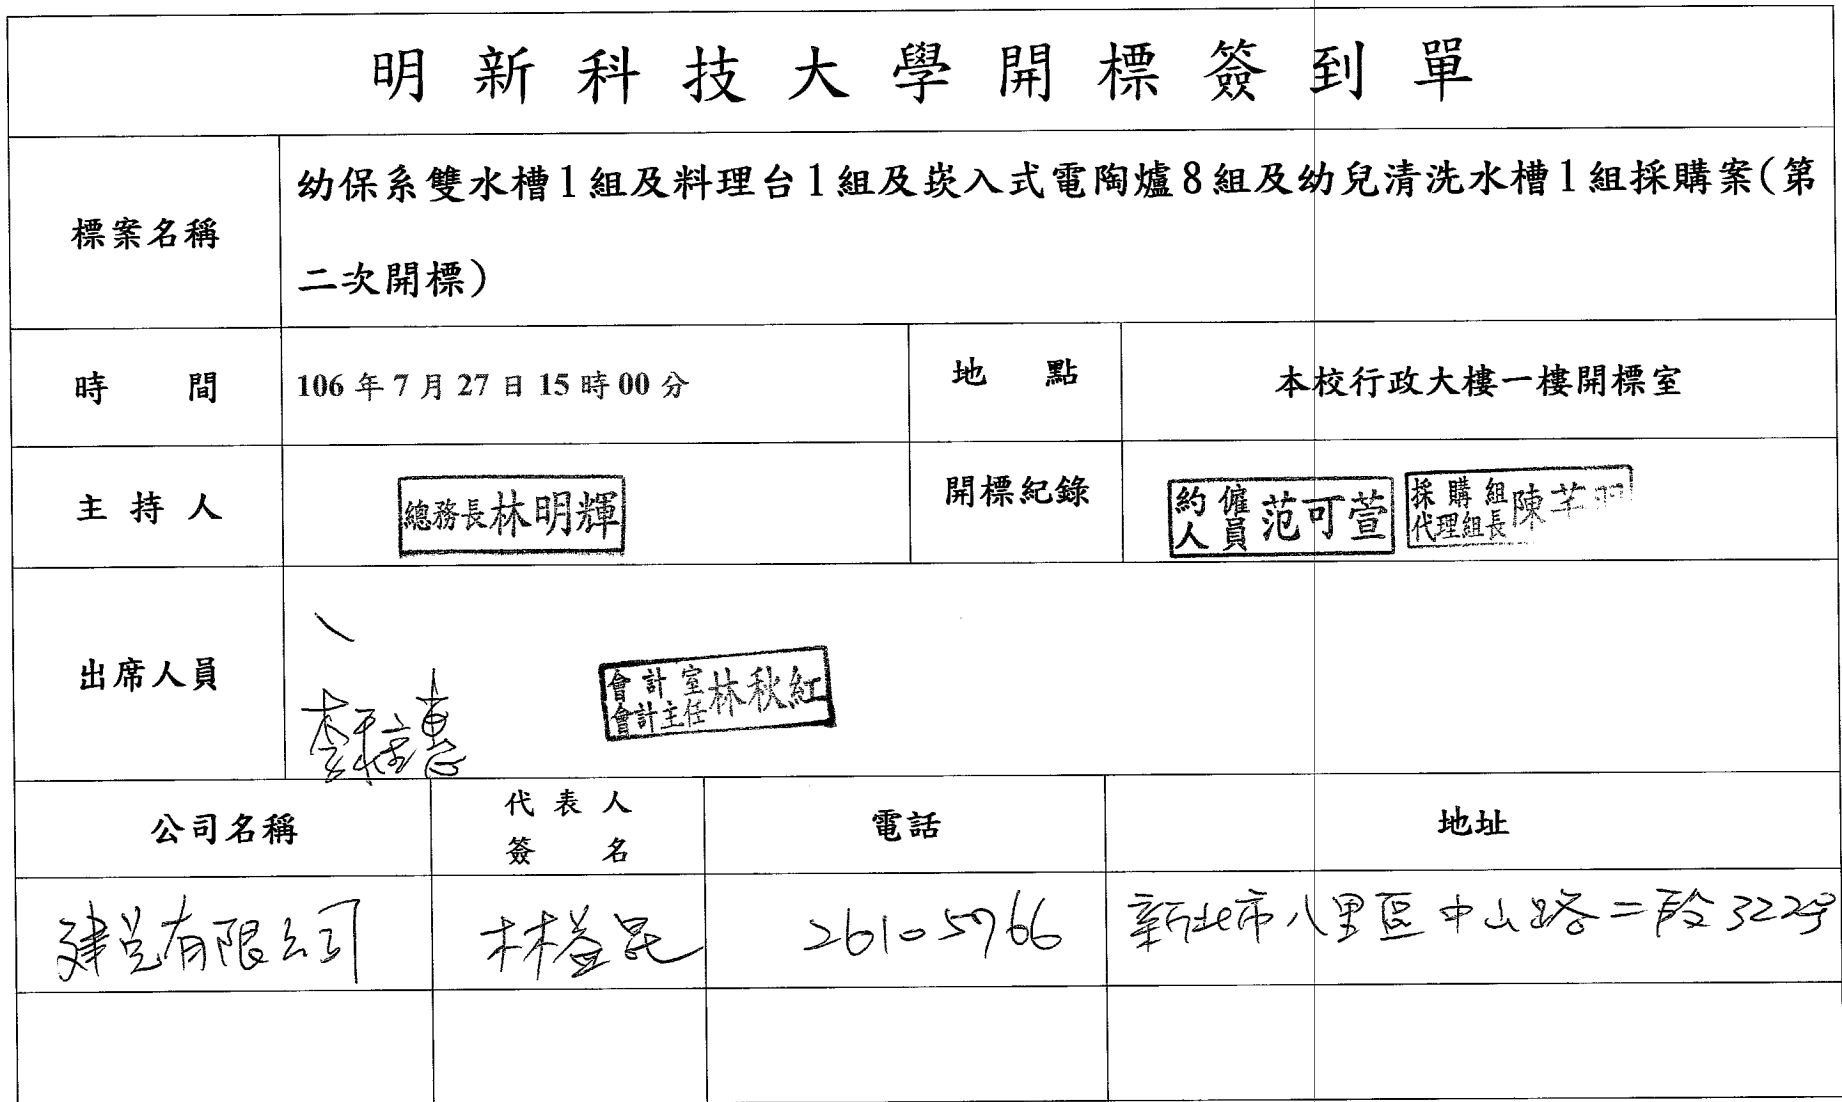 明新科技大學開標簽到單
標案名稱
幼保系雙水槽1組及料理台1組及崁入式電陶爐8組及幼兒清洗水槽1組採購案(第
二次開標)
時 間
106 年 7 月 27 日 15 時 00 分
地 點
本校行政大樓一樓開標室
主 持 人
總務長林明輝
開標紀錄
約僱
人員
范可萱
採購組
代理組長
陳
出席人員
會計室
會計主任
林秋紅
公司名稱
代 表 人
簽 名
電話
地址
有限公司
林益
26105766
新北市八里區中山路二段322號